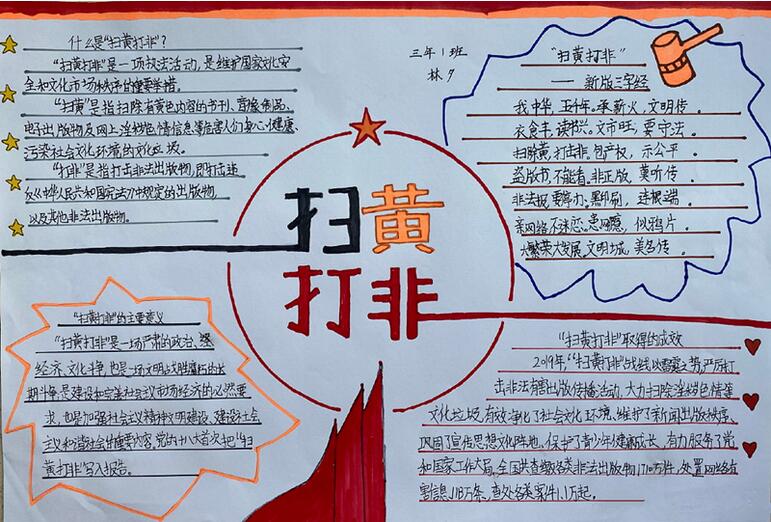 什么是"扫黄打非"?
"扫黄打非"是一项执法活动,是维护国家文化安
全和文化市场秩序的重要举措。
"扫黄"是指扫除有黄色内容的书刊、音像制品、
电子出版物及网上淫秽色情信息等危害人们身心健康、
污染社会文化环境的文化垃圾。
"打非"是指打击非法出版物,即打击违
反《中华人民共和国宪法》中规定的出版物,
以及其他非法出版物。
三年1班
林
"扫黄打非"
——新版三字经
我中华,五千年。承薪火,文明传。
衣食丰,读书兴。文市旺,要守法。
扫除黄,打击非。包产权,示公平。
盗版书,不能看。非正版,莫听传。
非法报,要举办。黑印刷,连根端。
亲网络,不迷恋。患网瘾,似鸦片。
大繁荣,大发展。文明城,美名传。
扫黄
打非
"扫黄打非"的主要意义
"扫黄打非"是一场严肃的政治、
经济、文化斗争,也是一场文明战胜腐朽的长
期斗争,是建设和完善社会主义市场经济的必然要
求,也是加强社会主义精神文明建设、建设社会
主义和谐社会的重要内容,党的十八大首次把"扫
黄打非"写入报告。
"扫黄打非"取得的成效
2019年,"扫黄打非"战线以雷霆之势,严厉打
击非法有害出版传播活动,大力扫除淫秽色情等
文化垃圾,有效净化了社会文化环境、维护了新闻出版秩序、
巩固了宣传思想文化阵地、保护了青少年健康成长,有力服务了党
和国家工作大局。全国共查缴各类非法出版物1710万件,处置网络有
害信息1118万条,查处各类案件1.1万起。